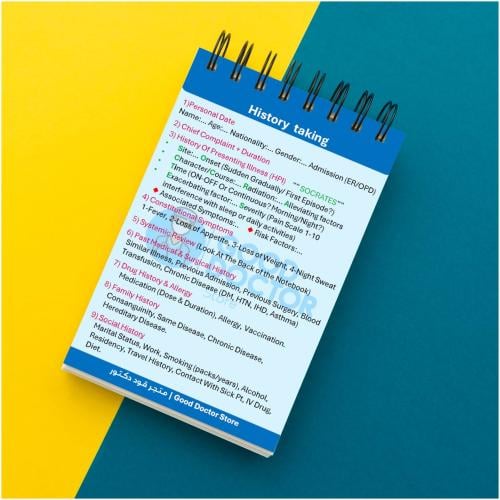 History taking
1)Personal Date
Name:... Age:... Nationality:... Gender:... Admission (ER/OPD)
2) Chief Complaint + Duration
3) History Of Presenting Illness (HPI) --- SOCRATES---
Site:... Onset (Sudden Gradually/ First Episode?)
Character/Course:... Radiation:... Alleviating factors
Time (ON-OFF Or Continuous? Morning/Night?)
Exacerbating factor:... Severity (Pain Scale 1-10
interference with sleep or daily activities)
Associated Symptoms:.. Risk Factors:...
4) Constitutional Symptoms
1-Fever, 2-Loss of Appetite, 3-Loss of Weight, 4-Night Sweat
5) Systemic Review (Look At The Back of the Notebook)
6) Past Medical & Surgical History
Similar Illness, Previous Admission, Previous Surgery, Blood
Transfusion, Chronic Disease (DM, HTN, IHD, Asthma)
7) Drug History & Allergy
Medication (Dose & Duration), Allergy, Vaccination.
8) Family History
Consanguinity, Same Disease, Chronic Disease,
Hereditary Disease.
9) Social History
Marital Status, Work, Smoking (packs/years), Alcohol,
Residency, Travel History, Contact With Sick Pt, IV Drug,
Diet.
GOOD
DOCTOR
Store
Good Doctor Store | متجر قود دكتور